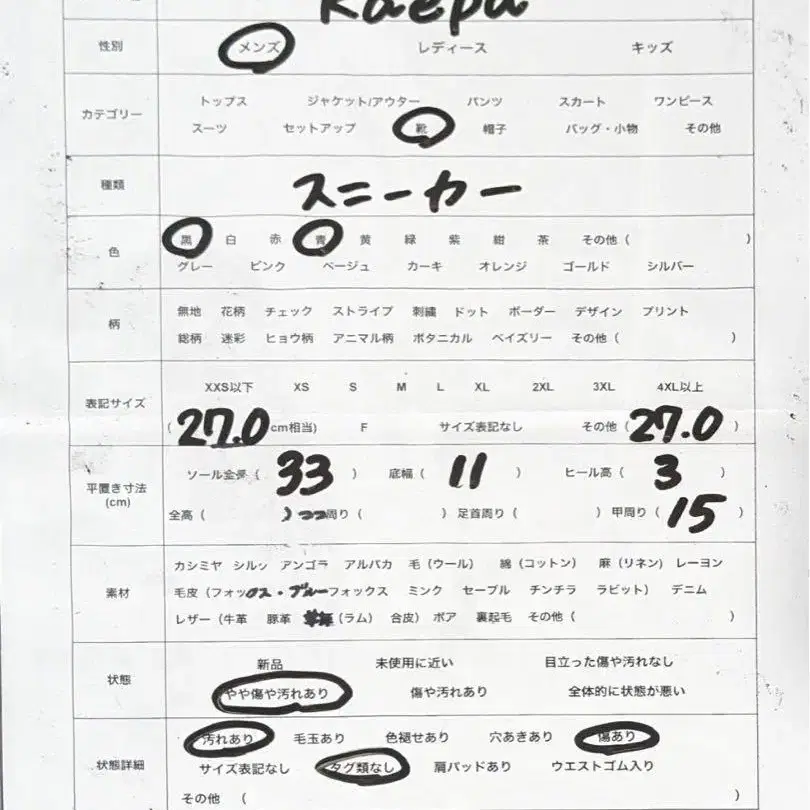 Kaepa
性別 メンズ レディース キッズ
カテゴリー
トップス ジャケット/アウター パンツ スカート ワンピース
スーツ セットアップ 靴 帽子 バッグ・小物 その他
種類 スニーカー
色
黒 白 赤 青 黄 緑 紫 紺 茶 その他( )
グレー ピンク ベージュ カーキ オレンジ ゴールド シルバー
柄
無地 花柄 チェック ストライプ 刺繍 ドット ボーダー デザイン プリント
総柄 迷彩 ヒョウ柄 アニマル柄 ボタニカル ペイズリー その他( )
表記サイズ
XXS以下 XS S M L XL 2XL 3XL 4XL以上
(27.0cm相当) F サイズ表記なし その他(27.0)
平置き寸法
(cm)
ソール全長(33) 底幅(11) ヒール高(3)
全高( ) 周り( ) 足首周り( ) 甲周り(15)
素材
カシミヤ シルク アンゴラ アルパカ 毛(ウール) 綿(コットン) 麻(リネン) レーヨン
毛皮(フォックス・ブルーフォックス ミンク セーブル チンチラ ラビット) デニム
レザー(牛革 豚革 (ラム) 合皮) ボア 裏起毛 その他( )
状態
新品 未使用に近い 目立った傷や汚れなし
やや傷や汚れあり 傷や汚れあり 全体的に状態が悪い
状態詳細
汚れあり 毛玉あり 色褪せあり 穴あきあり 傷あり
サイズ表記なし タグ類なし 肩パッドあり ウエストゴム入り
その他 ( )